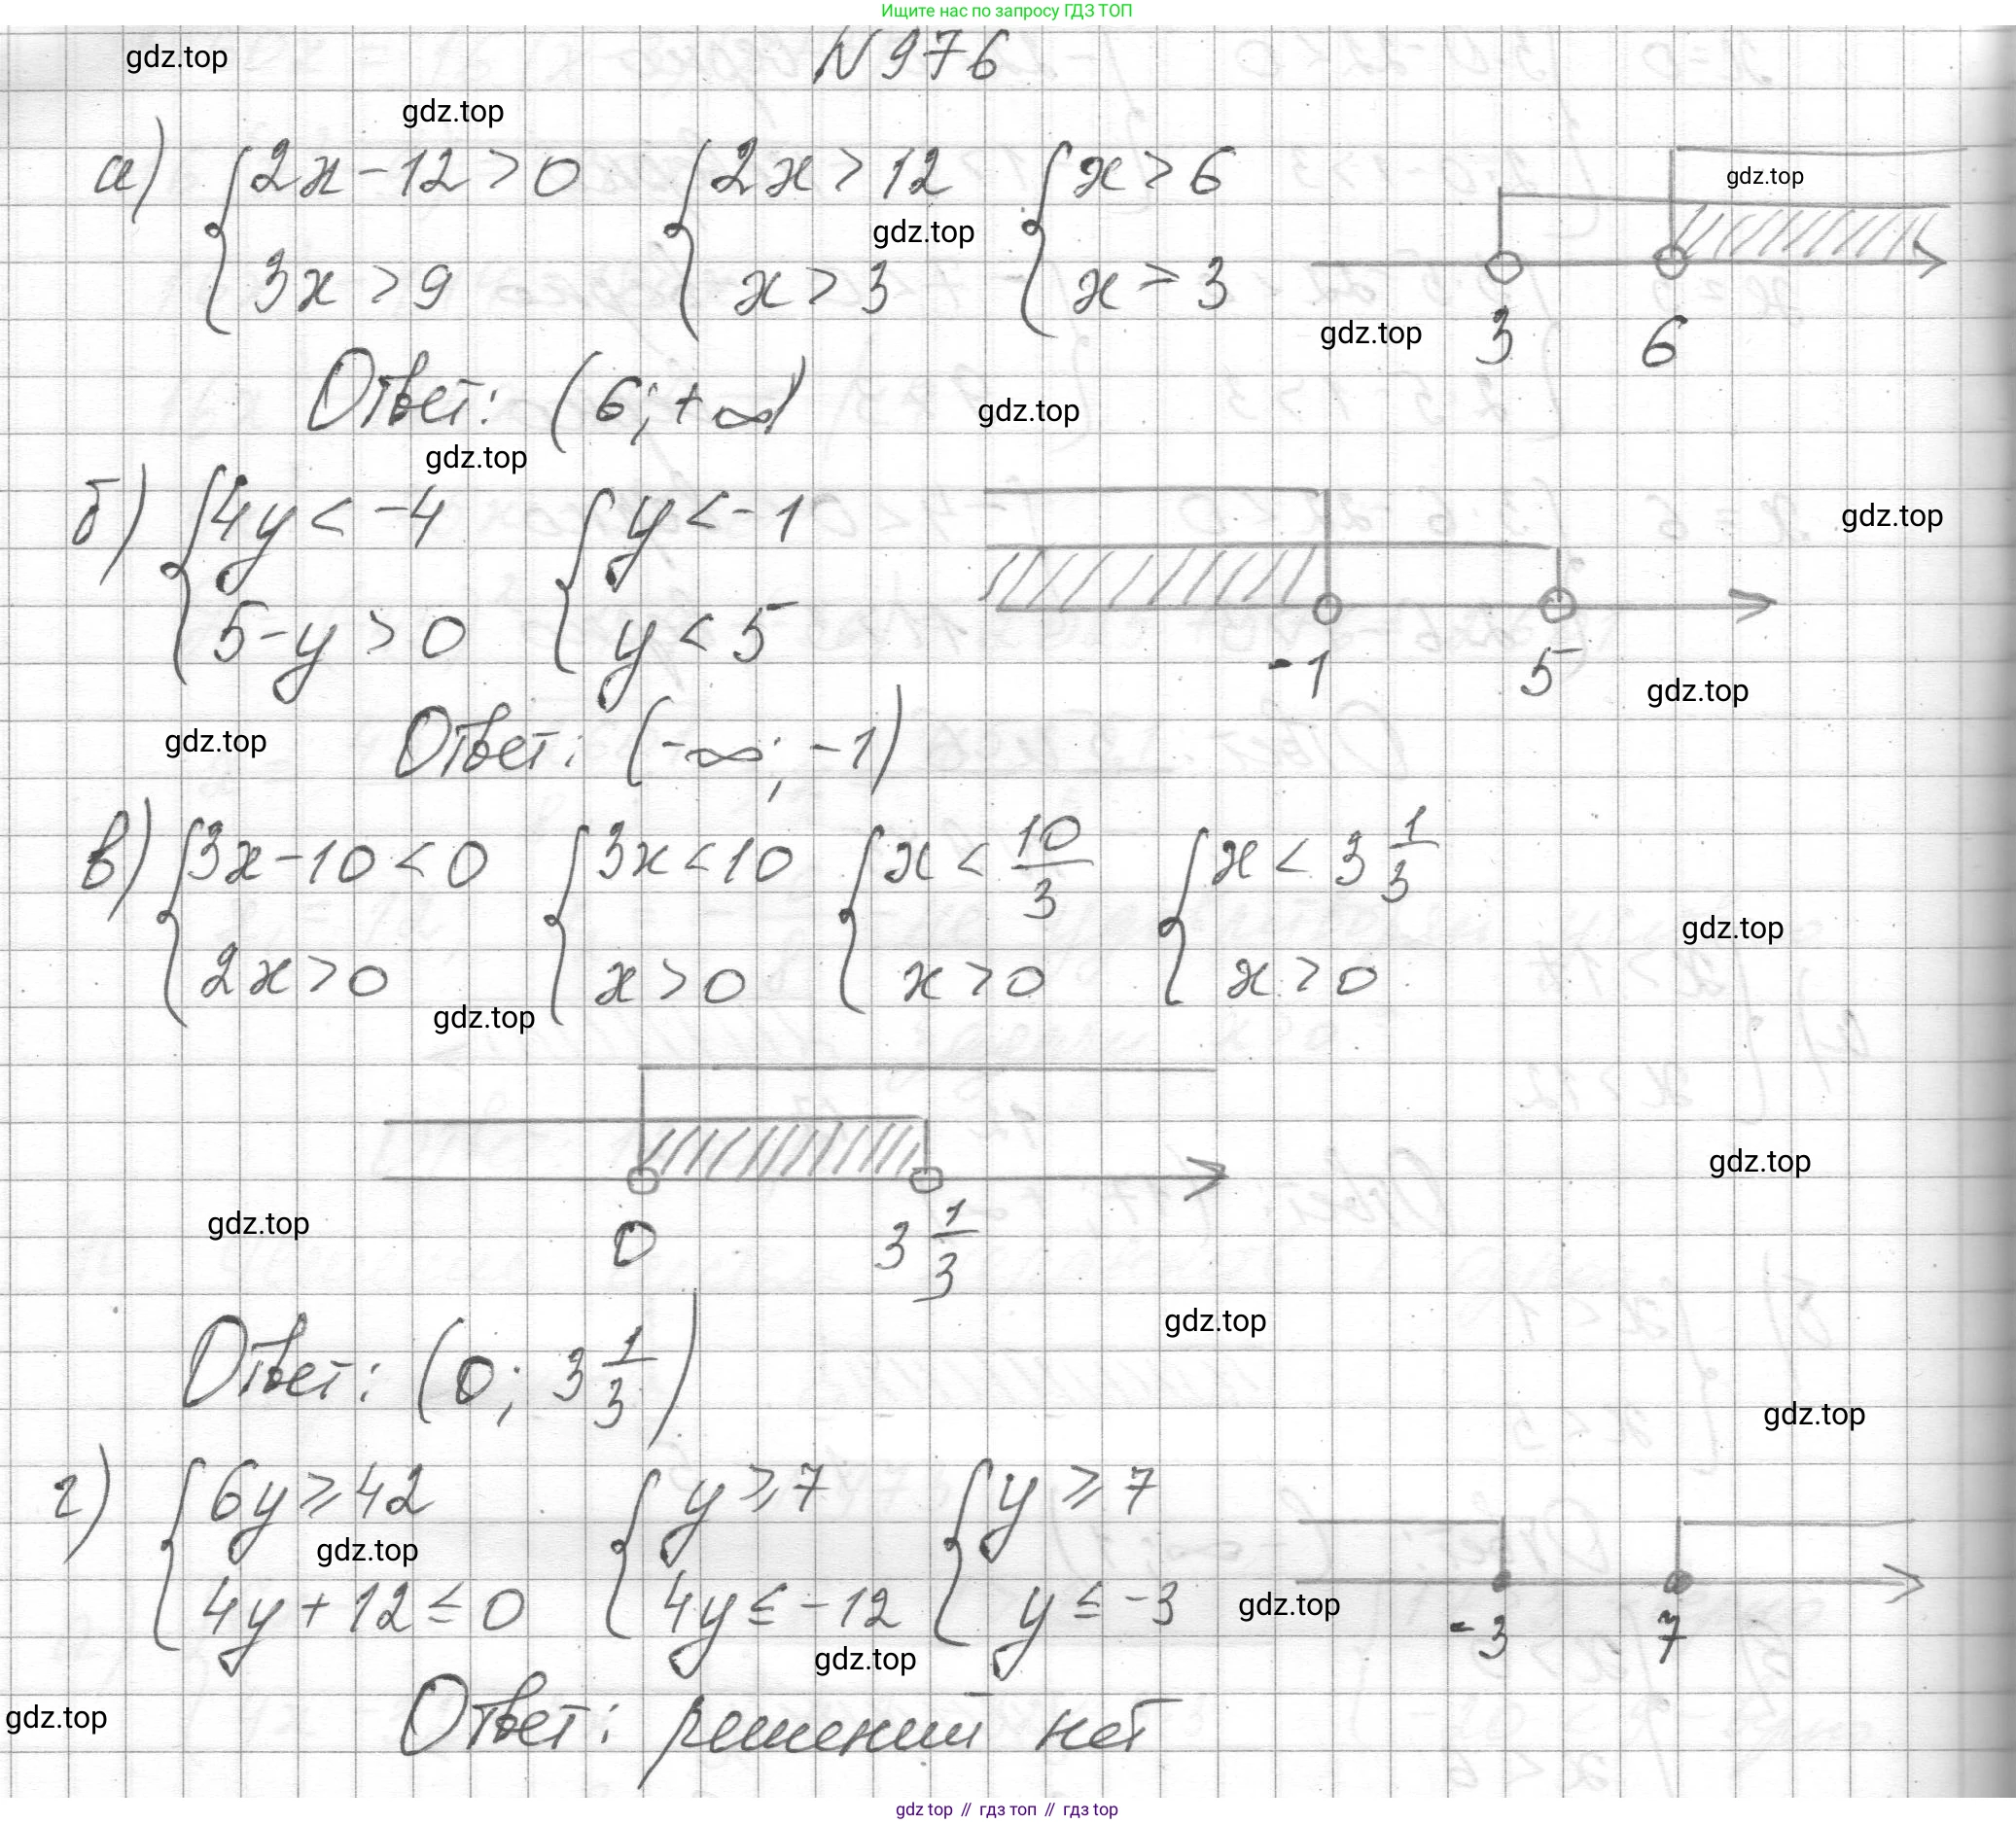 Ищите нас по запросу ГДЗ ТОП
N 976
gdz.top
gdz.top
а) {2x-12>0 {2x>12 {x>6
3x>9 x>3 x>3
gdz.top
gdz.top
gdz.top
3 6
Ответ: (6; +∞)
gdz.top
gdz.top
б) {4y<-4 {y<-1
5-y>0 y<5
gdz.top
-1 5
gdz.top
gdz.top
Ответ: (-∞; -1)
в) {3x-10<0 {3x<10 {x<10/3 {x<3 1/3
2x>0 x>0 x>0 x>0
gdz.top
gdz.top
gdz.top
gdz.top
0 3 1/3
gdz.top
Ответ: (0; 3 1/3)
gdz.top
г) {6y⩾42 {y⩾7 {y⩾7
gdz.top
4y+12≤0 4y≤-12 y≤-3
gdz.top
-3 7
gdz.top
gdz.top
Ответ: решений нет
gdz top // гдз топ // гдз top